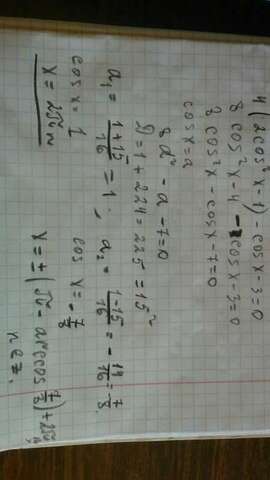 4(2cos²x-1)-cosx-3=0
8cos²x-4-cosx-3=0
8cos²x-cosx-7=0
cosx=a
8a²-a-7=0
D=1+224=225=15²
a₁= (1+15)/16 =1, a₂= (1-15)/16 = -14/16 = 7/8
cosx=1 cosx=-7/8
x=2πn x=±(π-arccos 7/8)+2πn
n∈z.